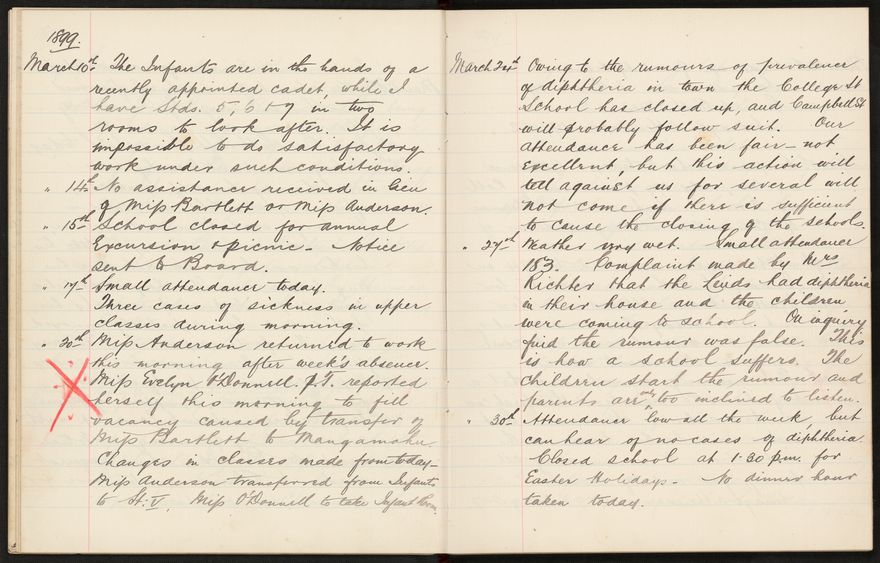 1899.
March 10th The Infants are in the hands of a
recently appointed cadet, while I
have Stds. 5, 6 & 7 in two
rooms to look after. It is
impossible to do satisfactory
work under such conditions.
" 14th No assistance received in lieu
of Miss Bartlett or Miss Anderson.
" 15th School closed for annual
Excursion & picnic - Notice
sent to Board.
" 17th Small attendance today.
Three cases of sickness in upper
classes during morning.
" 20th Miss Anderson returned to work
this morning after week's absence.
Miss Evelyn O'Donnell. P.T. reported
herself this morning to fill
vacancy caused by transfer of
Miss Bartlett to Mangamahu.
Changes in classes made from today -
Miss Anderson transferred from Infants
to St. V. Miss O'Donnell to take Infant Room.
March 24th Owing to the rumours of prevalence
of diphtheria in town the College St
School has closed up, and Campbell St
will probably follow suit. Our
attendance has been fair - not
excellent, but this action will
tell against us for several will
not come if there is sufficient
to cause the closing of the schools.
" 27th Weather very wet. Small attendance
183. Complaint made by Mrs
Richter that the Leuds had diphtheria
in their house and the children
were coming to school. On inquiry
find the rumour was false. This
is how a school suffers. The
children start the rumour and
parents are only too inclined to listen.
" 30th Attendance low all the week, but
can hear of no cases of diphtheria.
Closed school at 1.30 p.m. for
Easter Holidays - No dinner hour
taken today.